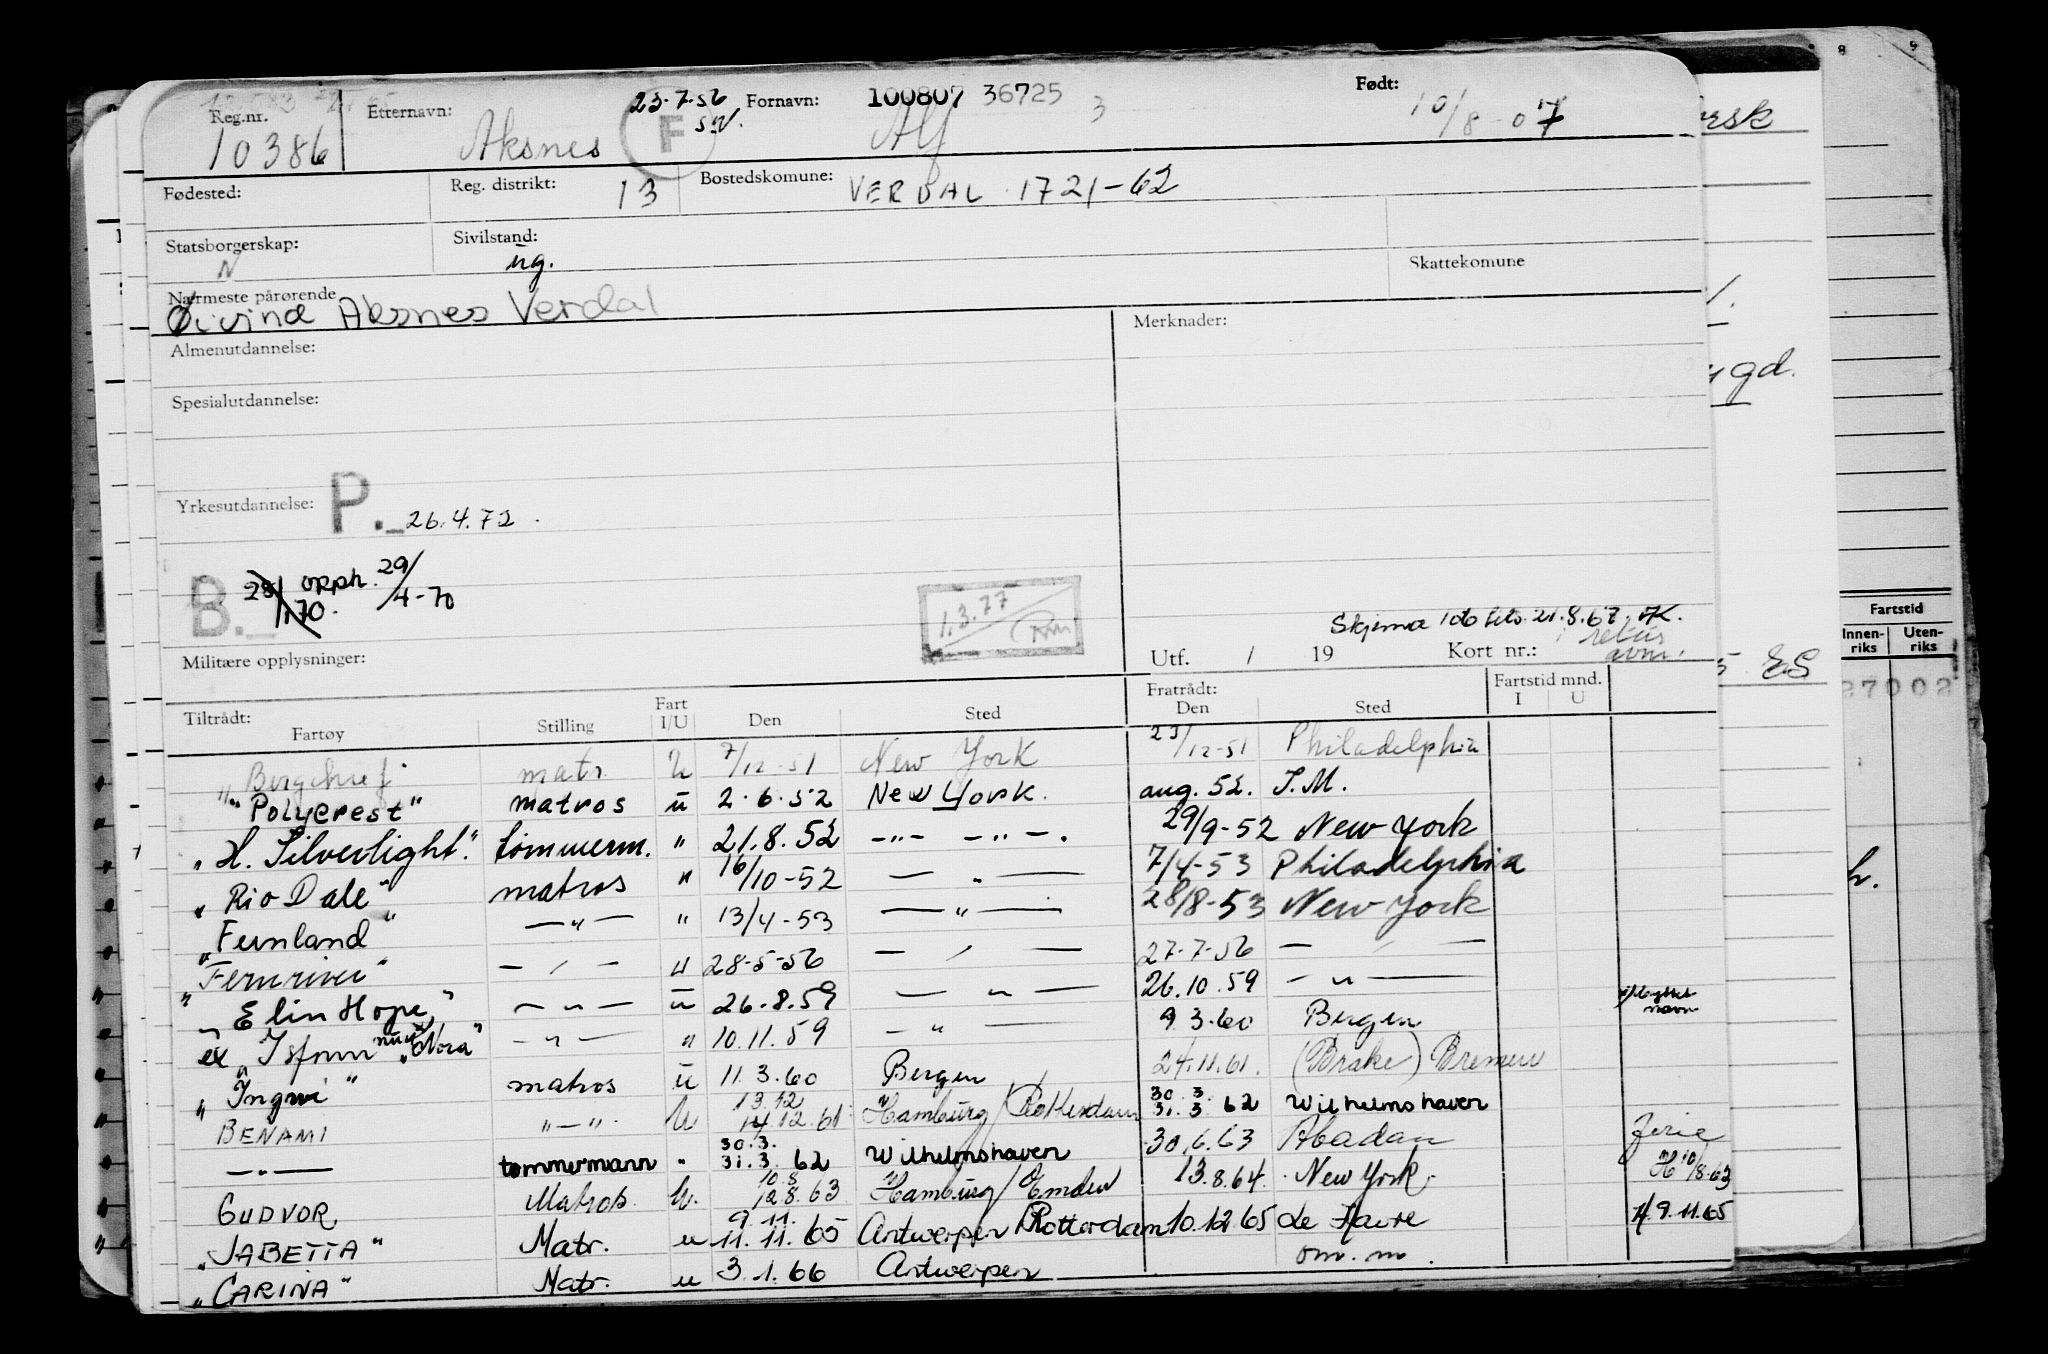 Reg.nr. Etternavn: 23.7.56 Fornavn: 100807 36725 3 Født:
10386 Aksnes F sN. Alf 10/8-07
Fødested: Reg. distrikt: 13 Bostedskomune: VERDAL 1721-62
Statsborgerskap: Sivilstand:
N ug. Skattekomune
Nærmeste pårørende
Øivind Aksnes Verdal
Almenutdannelse: Merknader:
Spesialutdannelse:
Yrkesutdannelse: P. 26.4.72.
B. 28/1.70. opph. 29/4-70
1.3.77
Skjema 106 21.8.67.
Militære opplysninger: Utf. / 19 Kort nr.: retur
Tiltrådt: Fart Fratrådt: Fartstid mnd.
Fartøy Stilling I/U Den Sted Den Sted I U
"Bergchief" matr. U 7/12-51 New York 23/12-51 Philadelphia
"Polycrest" matros u 2.6.52 New York. aug. 52. S.M.
"H. Silverlight." tømmerm. " 21.8.52 -"- -"-. 29/9-52 New York
"Rio Dale" matros " 16/10-52 — " — 7/4-53 Philadelphia
"Fernland" —"— " 13/4-53 —"— 28/8-53 New York
"Fernriver" — / — u 28-5-56 — / — 27-7-56 — / —
"Elin Hope" —"— u 26.8.59 — " — 26.10.59 —"—
ex "Isfonn" nu "Nora" —"— " 10.11.59 —"— 9.3.60 Bergen
"Ingwi" matros u 11.3.60 Bergen 24.11.61. (Brake) Bremen
BENAMI "—". U 13.12 14.12.61 Hamburg/Rotterdam 30.3. 31.3.62 Wilhelmshaven
—"— tømmermann " 30.3. 31.3.62 Wilhelmshaven 30.6.63 Abadan ferie
GUDVOR Matros. U. 10.8 12.8.63 Hamburg/Emden 13.8.64. New York. H 10/8-63
"JABETTA" Matr. u 9.11. 11.11.65 Antwerpen Rotterdam 10.12.65 Le Havre H. 9.11.65
"CARINA" Matr. u 3.1.66 Antwerpen om. m.
8 9
orsk
ugd.
ES
Fartstid
Innen-riks Uten-riks
27002
h.